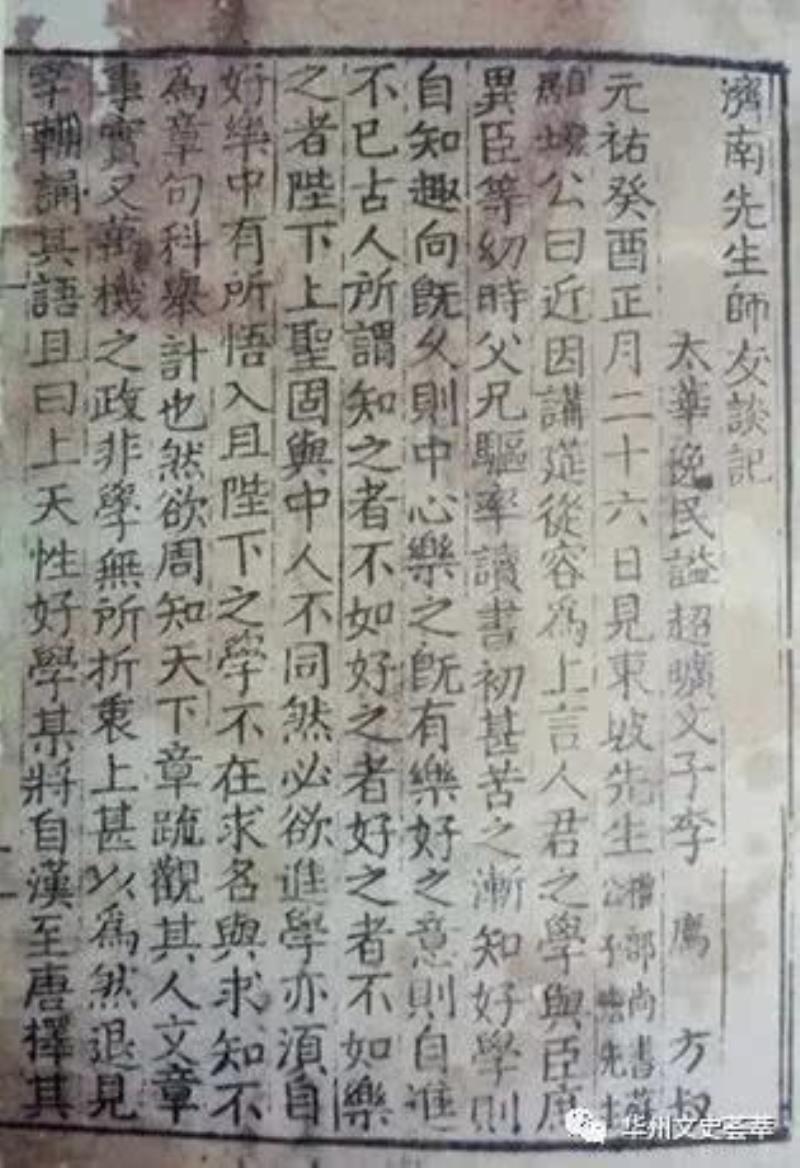 濟南先生師友談記
太華逸民謚超曠文子李 廌 方叔
元祐癸酉正月二十六日見東坡先生公禮部尚書
公曰近因講筵從容爲上言人君之學與臣庶
異臣等幼時父兄驅率讀書初甚苦之漸知好學則
自知趣向旣久則中心樂之旣有樂好之意則自進
不已古人所謂知之者不如好之者好之者不如樂
之者陛下上聖固與中人不同然必欲進學亦須自
好樂中有所悟入且陛下之學不在求名與求知不
爲章句科舉計也然欲周知天下章疏觀其人文章
事實又萬機之政非學無所折衷上甚以爲然退見
宰輔誦其語且曰上天性好學某將自漢至唐擇其
华州文史荟萃